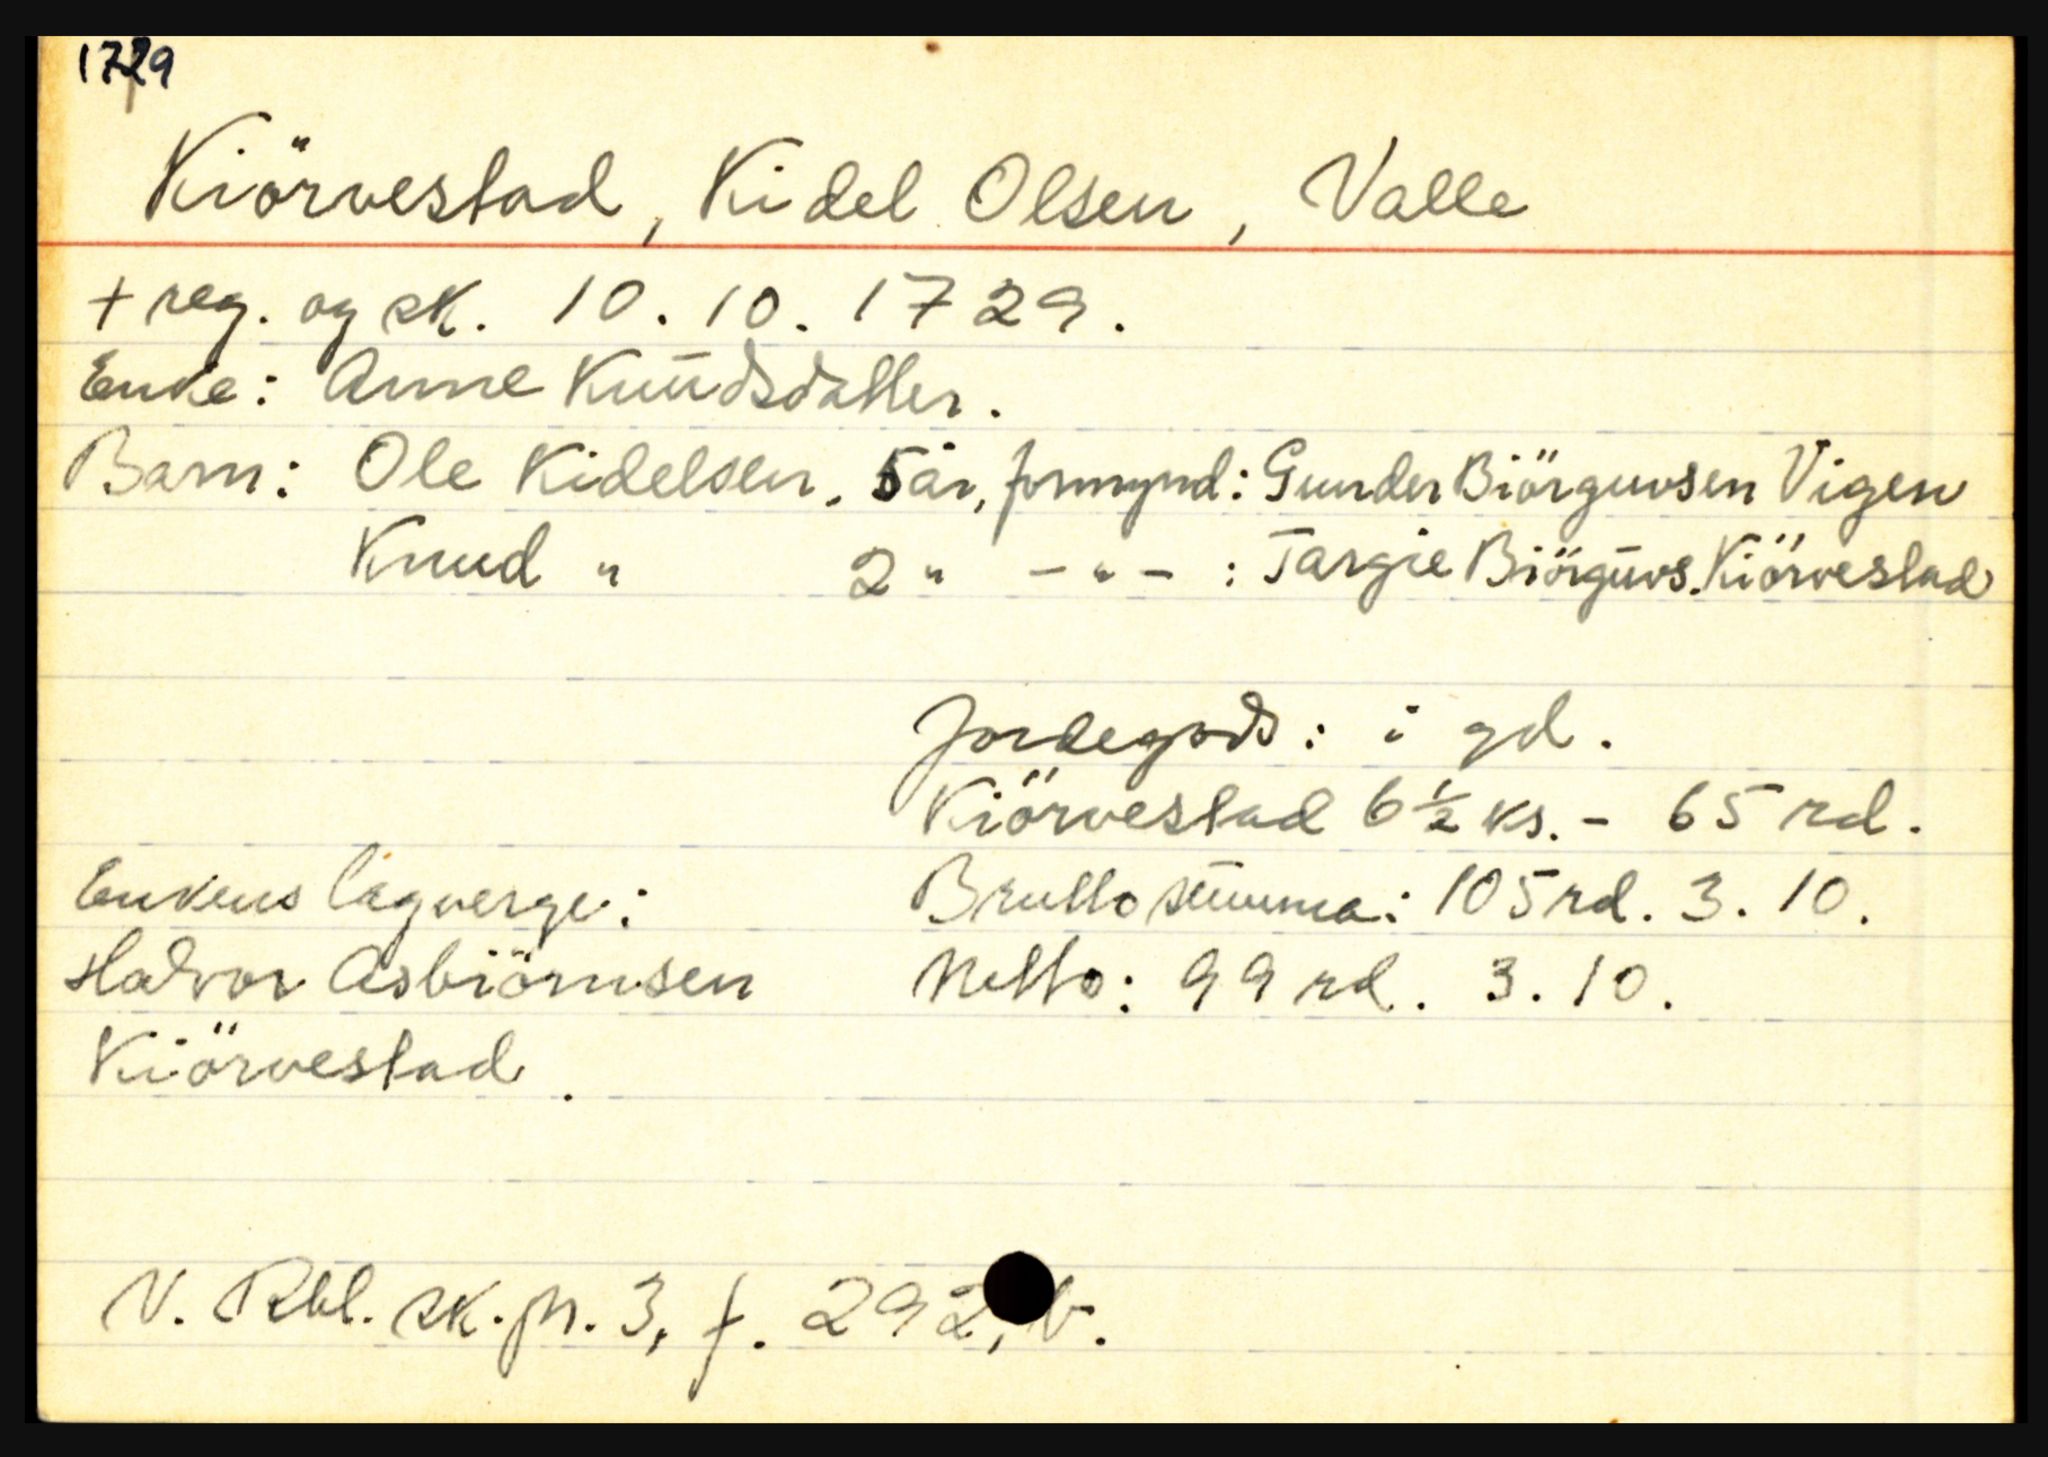 1729
Kiörvestad, Kidel Olsen, Valle
+ reg. og sk. 10. 10. 1729.
Enke: Anne Knūdsdatter.
Barn: Ole Kidelsen, 5 år, formynd: Gunder Biörguvsen Vigen
Knud " 2 " - " - : Targie Biörgūvs. Kiörvestad
Jordegods: i gd.
Kiörvestad 6 ½ ks. - 65 rd.
Enkens lagverge: Brutto sūmma: 105 rd. 3. 10.
Halvor Asbiörnsen Netto: 99 rd. 3. 10.
Kiörvestad.
N. Rbl. sk. pr. 3, f. 292, b.